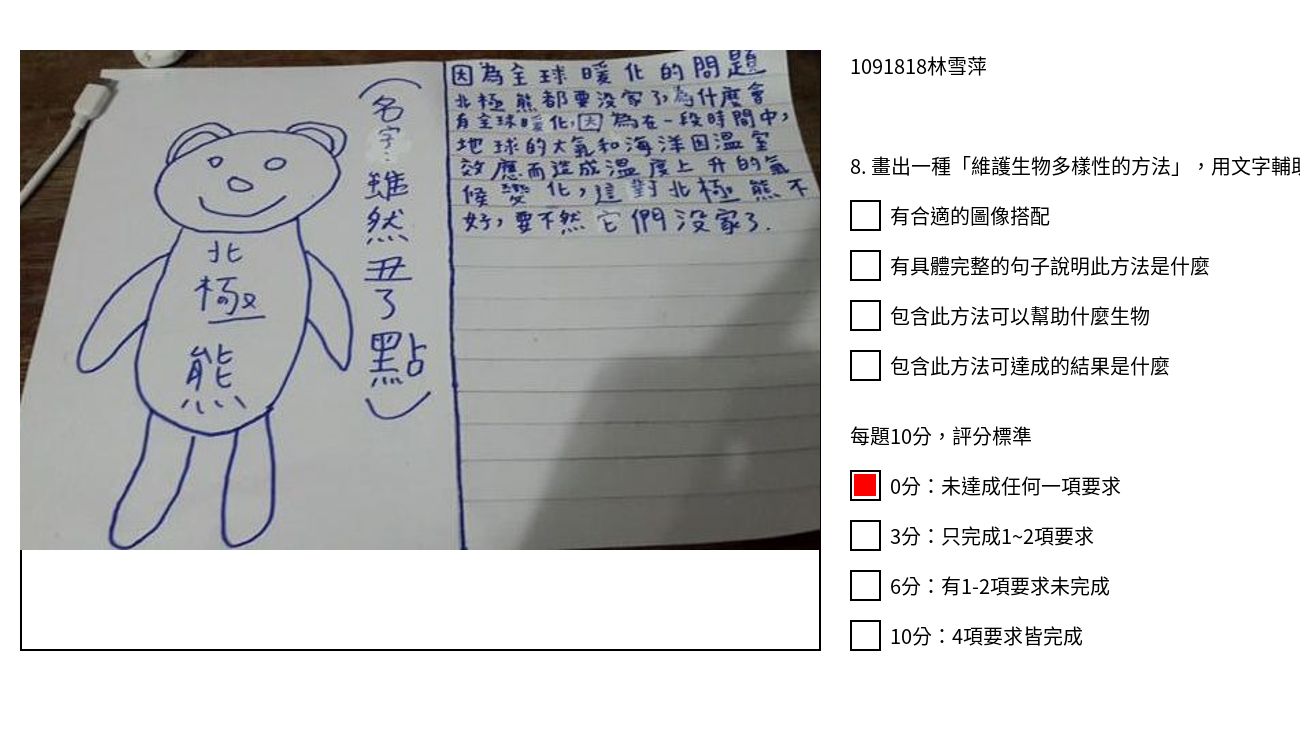 (名字:雖然丑了點)
北極熊
因為全球暖化的問題
北極熊都要没家了,為什麼會
有全球暖化,因為在一段時間中,
地球的大氣和海洋因溫室
效應而造成溫度上升的氣
候變化,這對北極熊不
好,要不然它們没家了.
1091818林雪萍
8. 畫出一種「維護生物多樣性的方法」,用文字輔助
有合適的圖像搭配
有具體完整的句子說明此方法是什麼
包含此方法可以幫助什麼生物
包含此方法可達成的結果是什麼
每題10分,評分標準
0分：未達成任何一項要求
3分：只完成1~2項要求
6分：有1-2項要求未完成
10分：4項要求皆完成